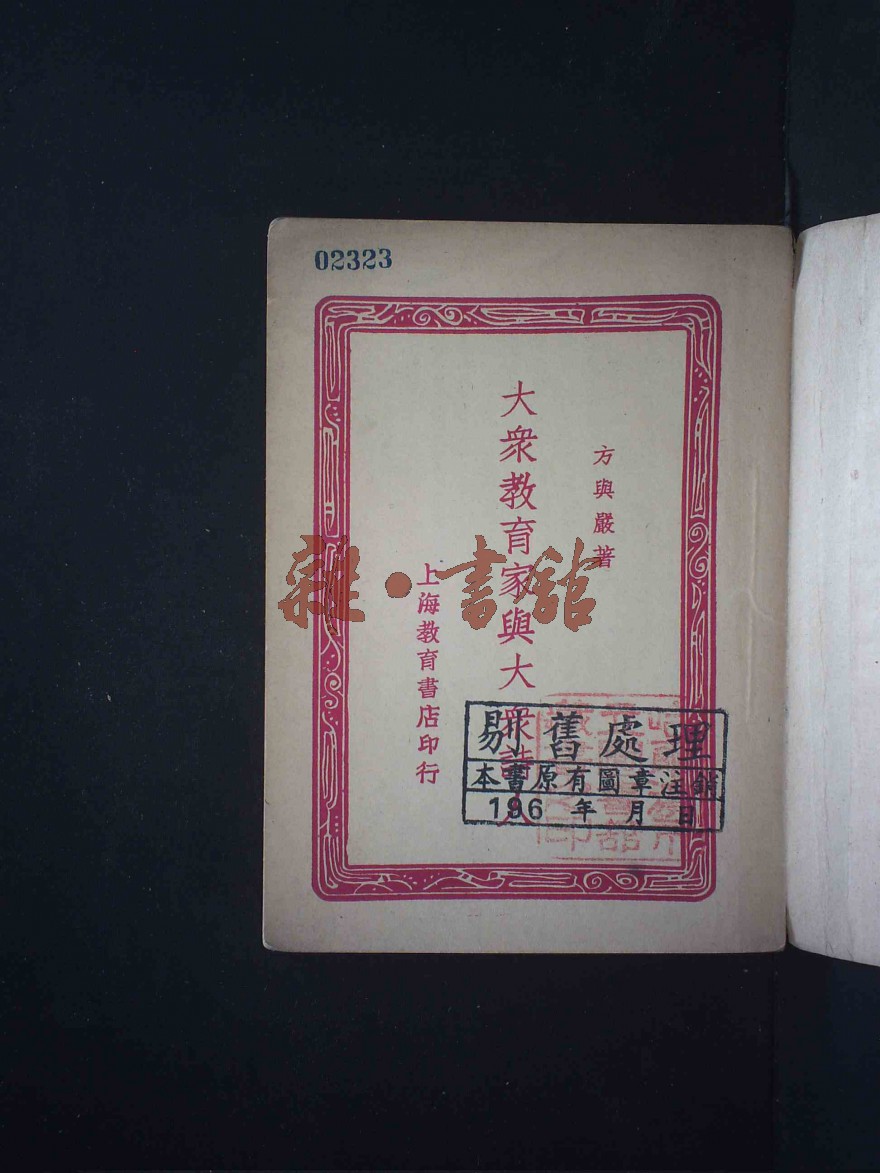 02323
方與嚴著
大衆教育家與大衆詩人
上海教育書店印行
雜·書館
剔舊處理
本書原有圖章注銷
196 年 月 日